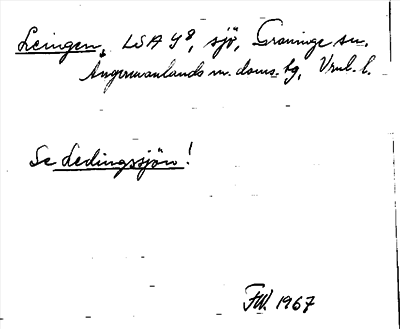 Leingen, LSA Y8, sjö, Graninge sn.
Ångermanlands m. doms. tg, Vnl. l.
Se Ledingssjön!
FW. 1967